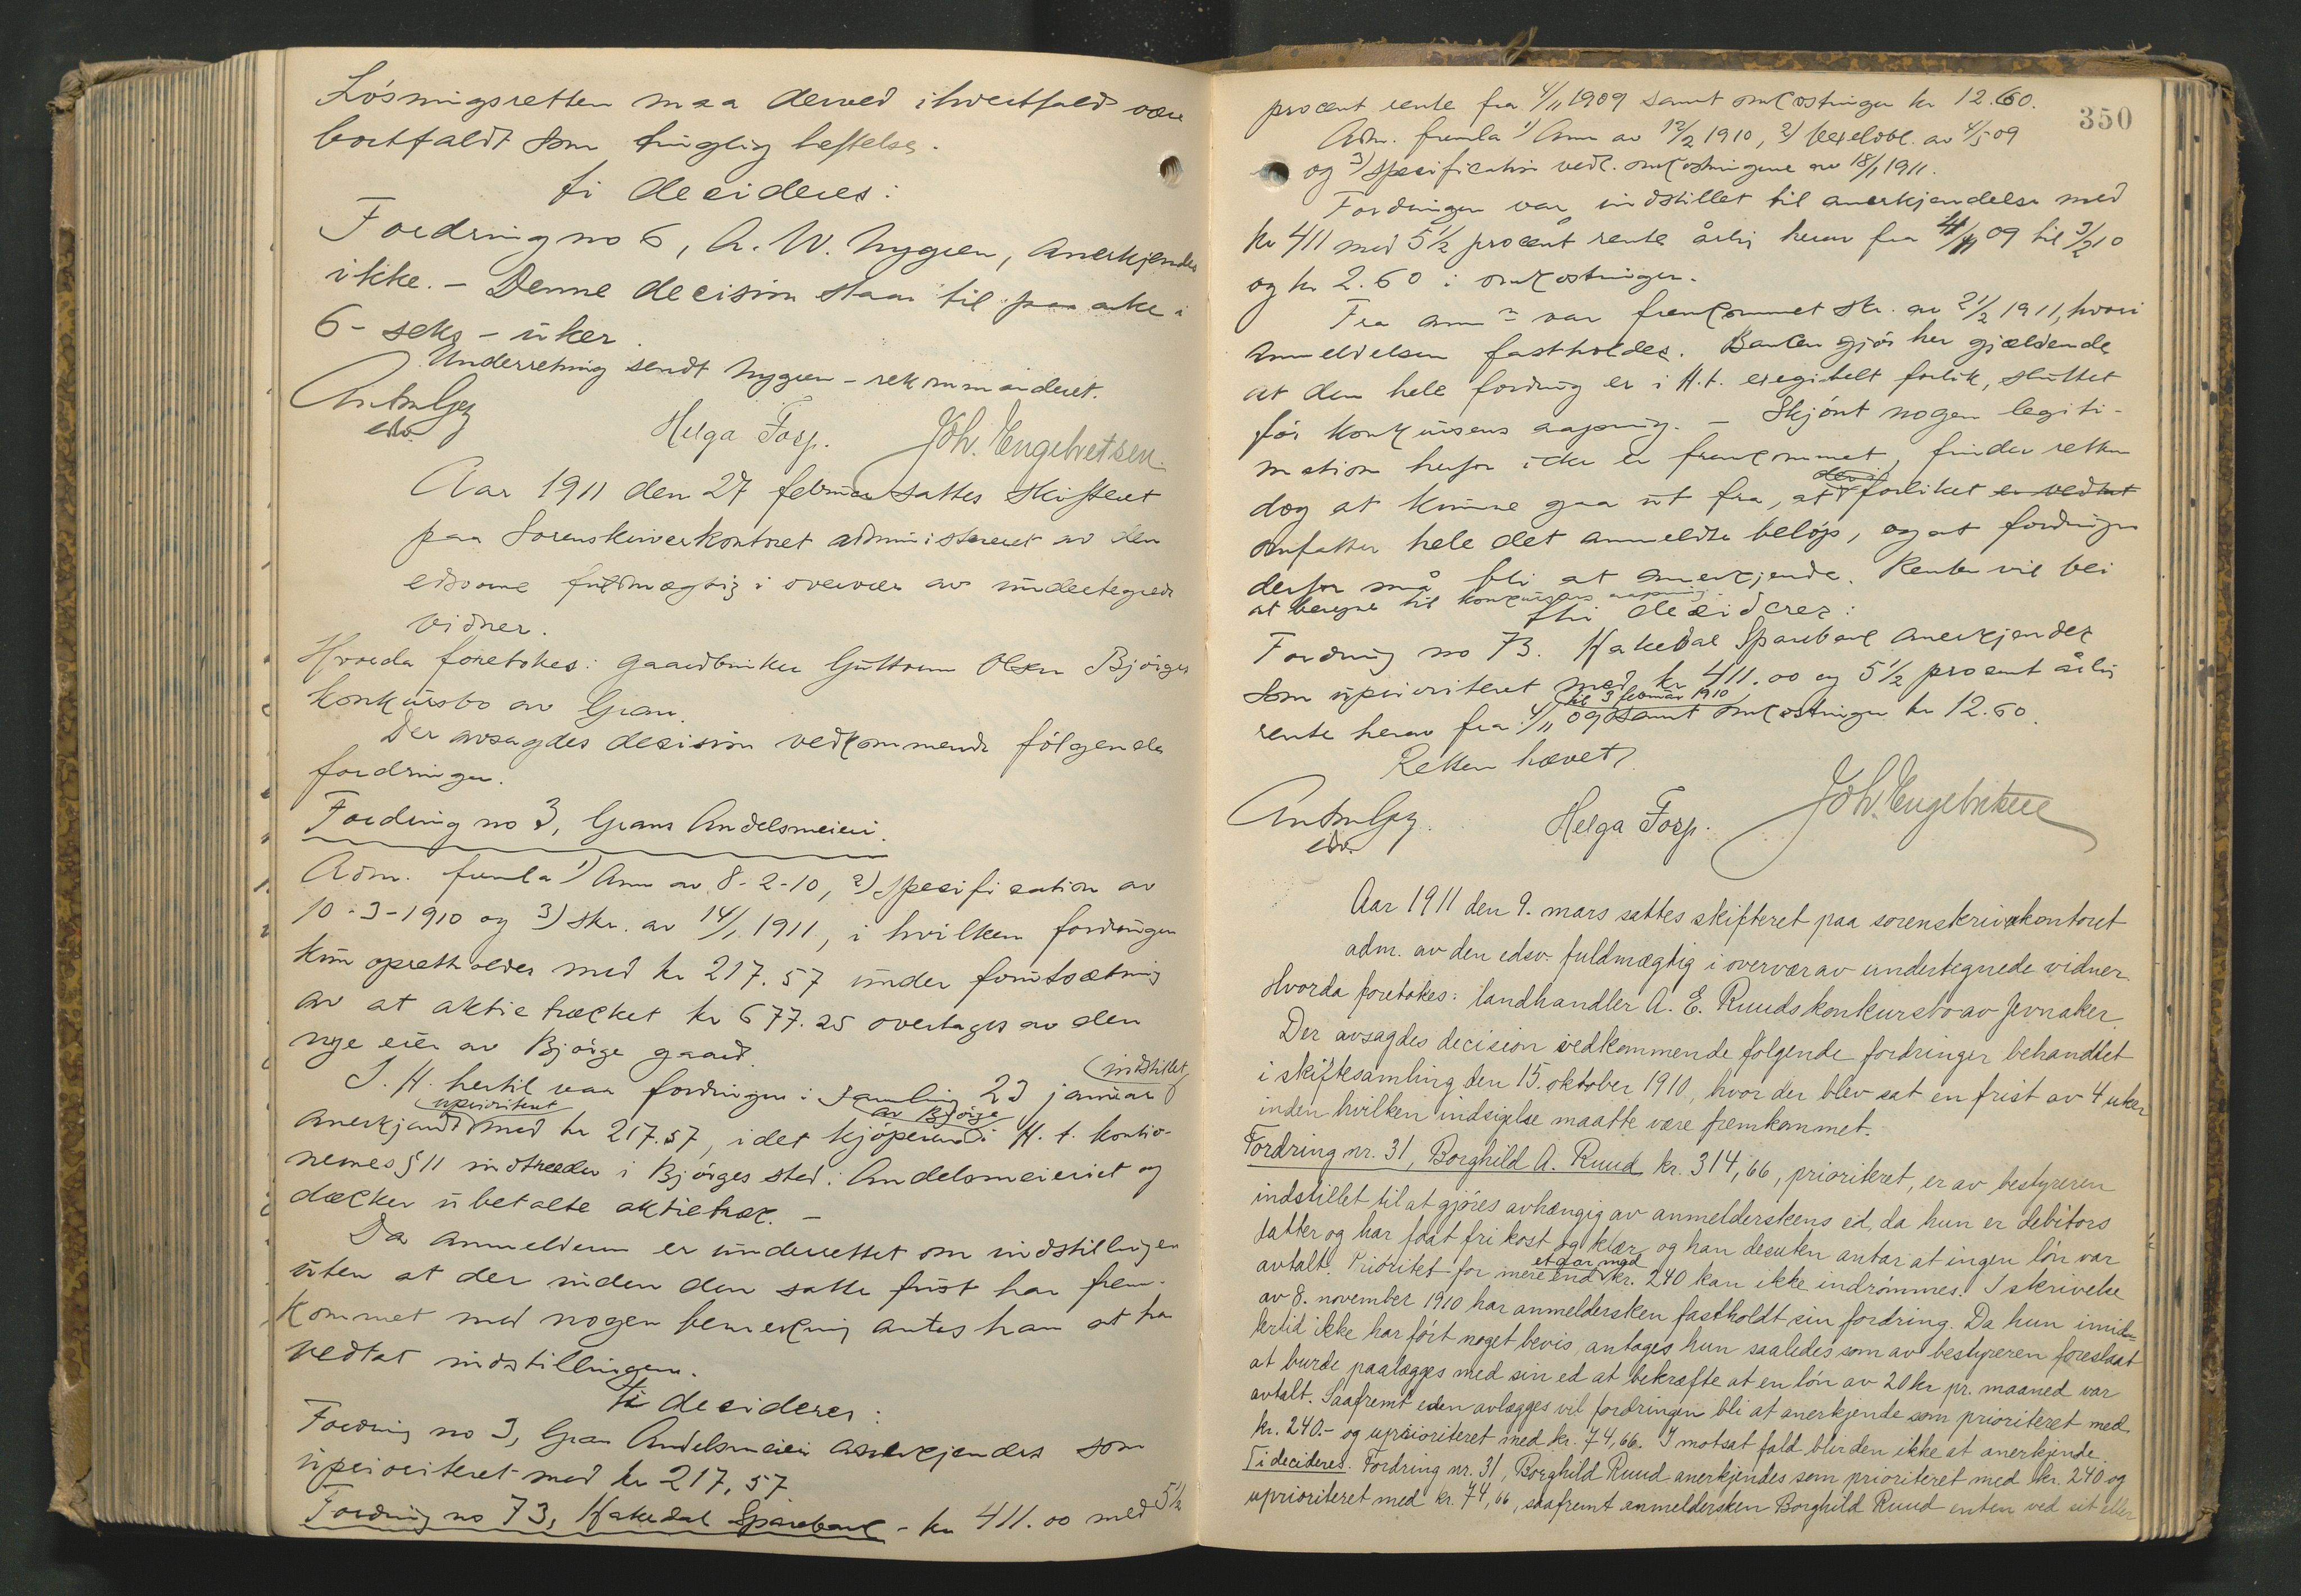 Lösningsretten maa derved ihvertfald være
bortfaldt som tinglig heftelse.
Ti decideres:
Fordring no 6, A. W. Nygren, anerkjendes
ikke. – Denne decision staar til paaanke i
6 - seks - uker.
Underretning sendt Nygren - rekommanderet.
edsv.
Helga Fosp. Joh. Engebretsen
Aar 1911 den 27 februar sattes skifteret
paa Sorenskriverkontoret administreret av den
edsvorne fuldmægtig i overvær av undertegnede
vidner.
Hvorda foretokes: Gaardbruker Guttorm Olsen Bjørges
konkursbo av Gran.
Der avsagdes decision vedkommende følgende
fordringer.
Fordring no 3, Grans Andelsmeieri.
Adm. fremla 1) Anm av 8-2-10, 2) Specification av
10-3-1910 og 3) skr. av 14/1 1911, i hvilken fordringen
kun opretholdes med kr 217.57 under forutsætning
av at aktietrækket kr 677.25 overtages av den
nye eier av Bjørge gaard.
I. H. hertil var fordringen i samling 23 januar indstillet
anerkjendt uprioriteret med kr 217.57, idet kjøperen av Bjørge i H. t. kontio-
nernes § 11 indtræder i Bjørges sted i Andelsmeieriet og
dækker ubetalte aktietræk. –
Da anmelderen er underrettet om indstillingen
uten at der inden den satte frist har frem-
kommet med nogen bemerkning antas han at ha
vedtat indstillingen.
Ti decideres:
Fordring no 3, Gran Andelsmeieri anerkjendes som
uprioriteret med kr 217,57.
Fordring no 73, Hakedal Sparebank - kr 411.00 med 5½
350
procent rente fra 4/11 1909 samt omkostninger kr 12.60.
Adm. fremla 1) Anm av 12/2 1910, 2) vexelobl. av 4/5 09
og 3) Specification vedk. omkostningene av 18/1 1911.
Fordringen var indstillet til anerkjendelse med
kr 411 med 5½ procent rente årlig herav fra 4/11 09 til 3/2 10
og kr 2.60 i omkostninger.
Fra anm var fremkommet skr. av 21/2 1911, hvori
anmeldelsen fastholdes. Banken gjør her gjældende
at den hele fordring er i H.t. exegibelt forlik, sluttet
før konkursens aapning. – Skjønt nogen legiti-
mation herfor ikke er fremkommet, finder retten
dog at kunne gaa ut fra, at forliket er vedtat
omfatter hele det anmeldte beløp, og at fordringen
derfor må bli at anerkjende. Renten vil bli
at beregne til konkursens aapning.
Thi decideres:
Fordring no 73. Hakedal Sparebank anerkjendes
som uprioriteret med kr 411.00 og 5½ procent årlig
rente herav fra 4/11 09 til 3 februar 1910 samt omkostninger kr 12.60.
Retten hævet
edsv.
Helga Fosp. Joh. Engebretsen
Aar 1911 den 9. mars sattes skifteret paa sorenskriverkontoret
adm. av den edsv. fuldmægtig i overvær av undertegnede vidner.
Hvorda foretokes: landhandler A. E. Ruuds konkursbo av Jevnaker.
Der avsagdes decision vedkommende følgende fordringer behandlet
i skiftesamling den 15. oktober 1910, hvor der blev sat en frist av 4 uker
inden hvilken indsigelse maatte være fremkommet.
Fordring nr. 31, Borghild A. Ruud kr. 314,66, prioriteret, er av bestyreren
indstillet til at gjøres avhængig av anmelderskens ed, da hun er debitors
datter og har faat fri kost og klær og han desuten antar at ingen løn var
avtalt. Prioritet for mere end et aar med kr. 240 kan ikke indrømmes. I skrivelse
av 8. november 1910 har anmeldersken fastholdt sin fordring. Da hun imid-
lertid ikke har ført noget bevis, antages hun saaledes som av bestyreren foreslaat
at burde paalægges med sin ed at bekræfte at en løn av 20 kr pr. maaned var
avtalt. Saafremt eden avlægges vil fordringen bli at anerkjende som prioriteret med
kr. 240.- og uprioriteret med kr. 74,66. I motsat fald blir den ikke at anerkjende.
Ti decideres. Fordring nr. 31, Borghild Ruud anerkjendes som prioriteret med kr. 240 og
uprioriteret med kr. 74,66, saafremt anmeldersken Borghild Ruud enten ved sit eller